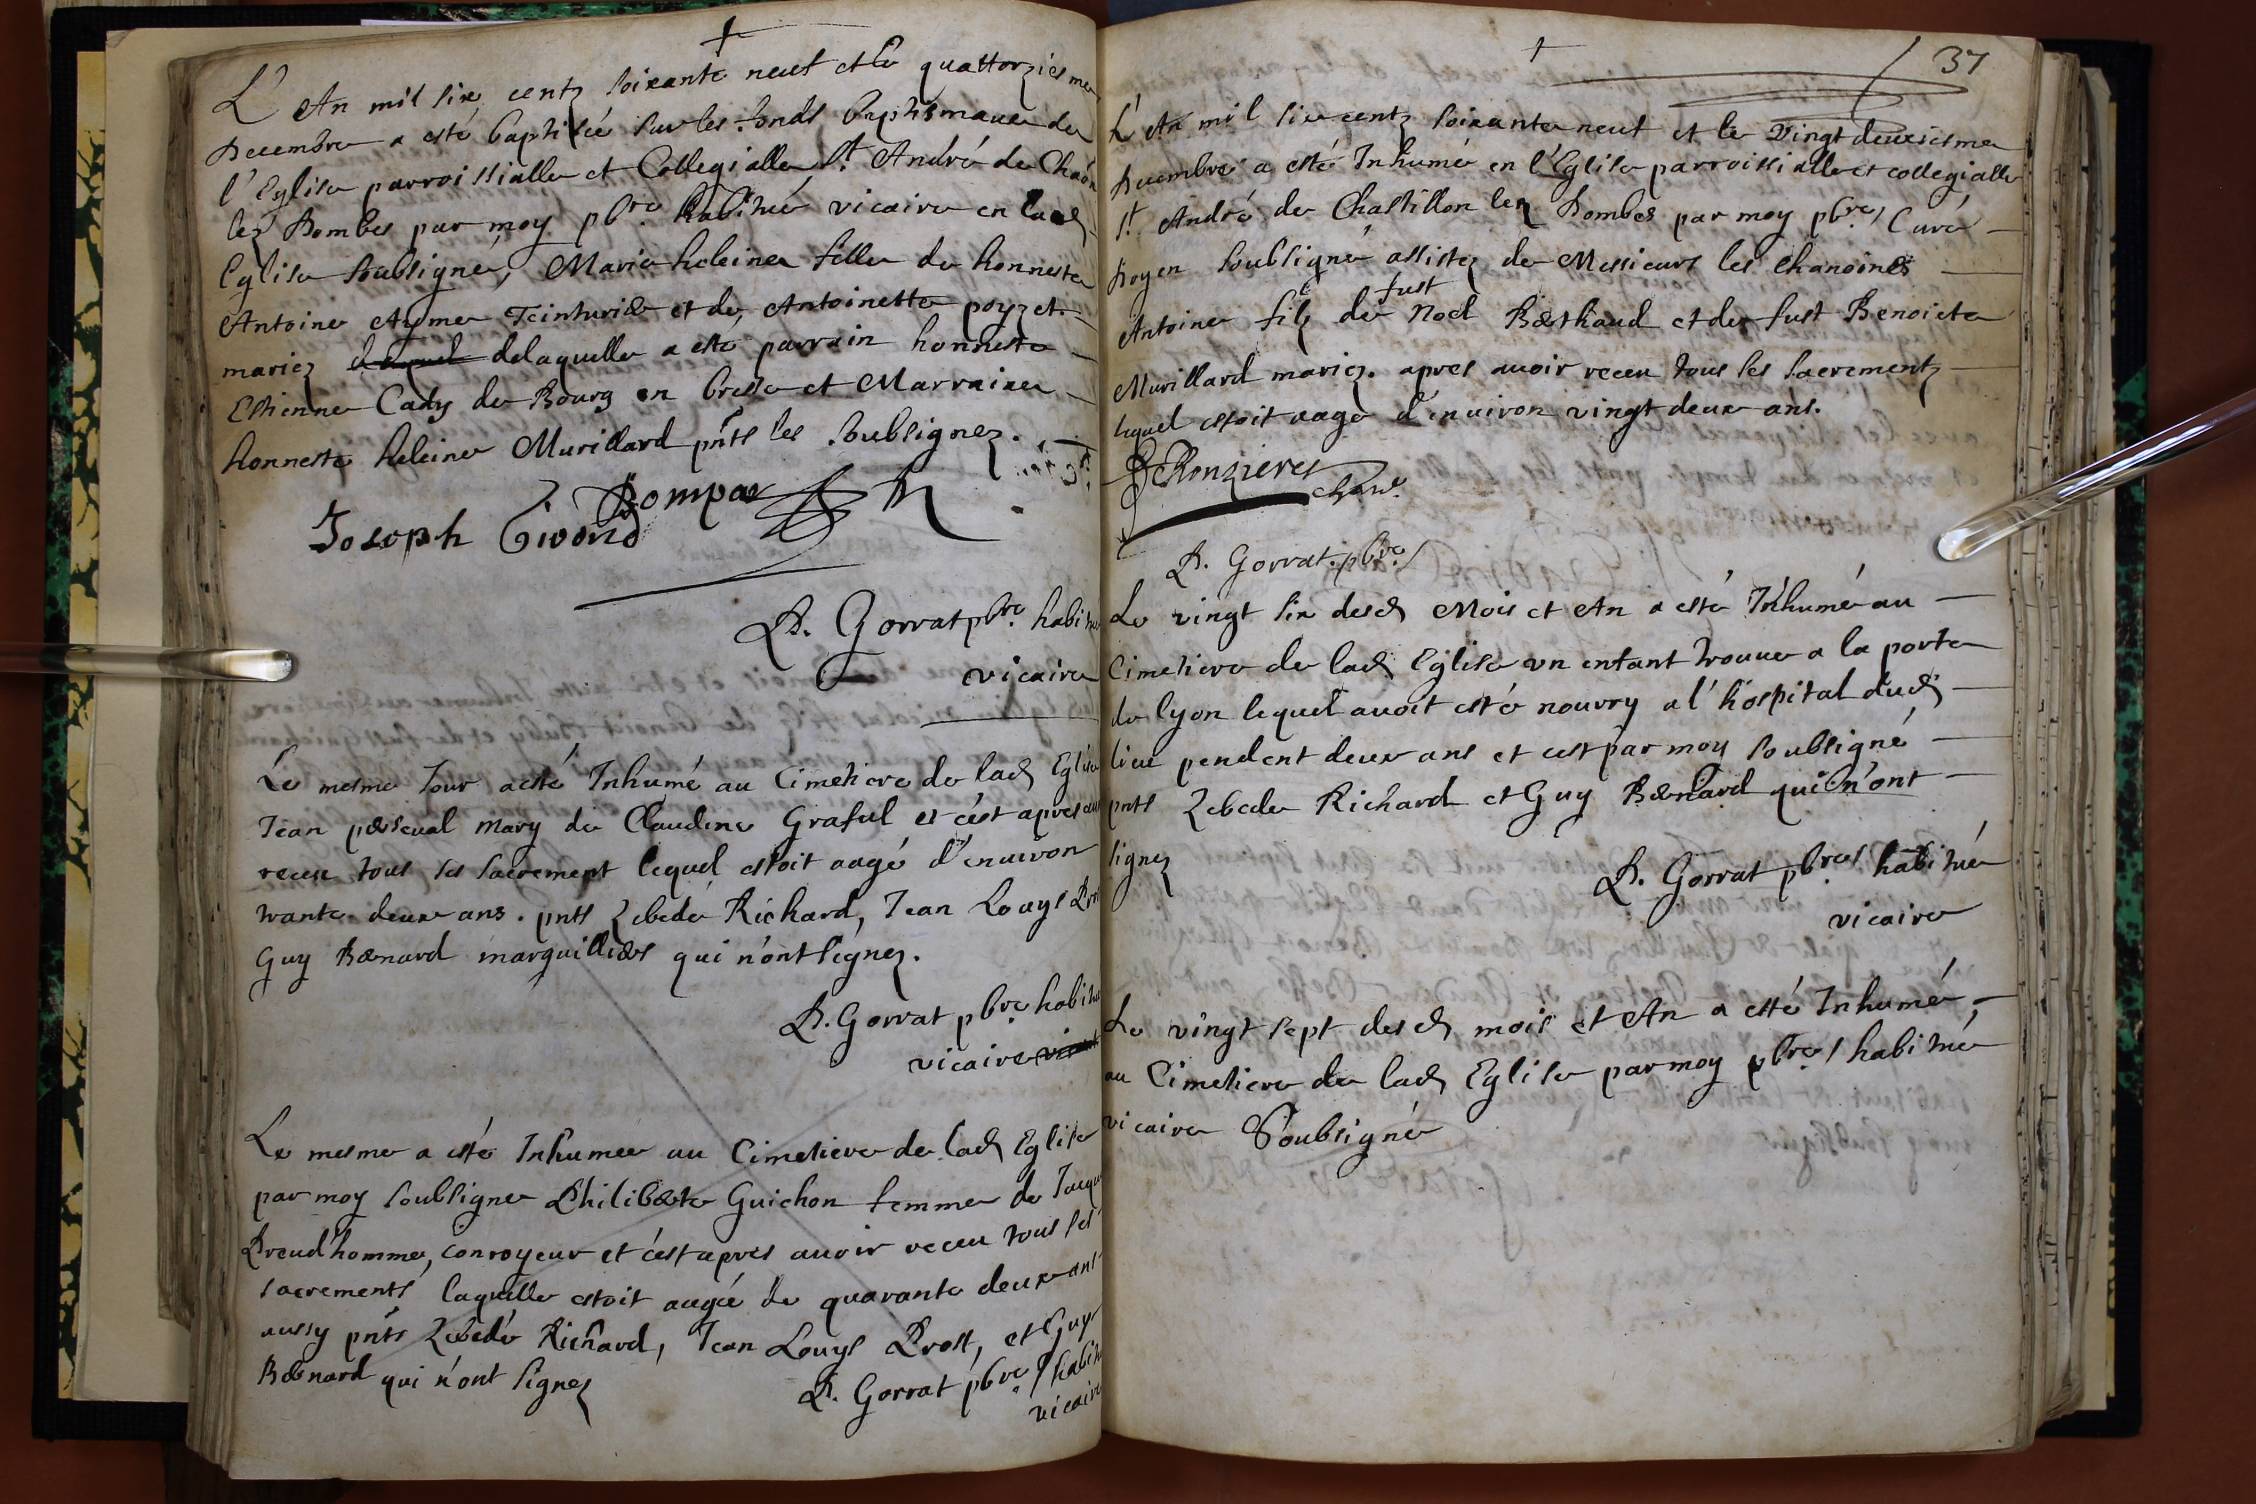 L'An mil six centz soixante neuf et le quattorziesme
Decembre a esté baptisée sur les fonds baptismaux de
l'Eglise parroissialle et Collegialle St. André de Chaôn
lez Dombes par moy pbre. habitué vicaire en lad.
Eglise soubsigné, Marie heleine fille de honneste
Antoine Ayme Teinturier et de Antoinette poyzet
mariez delaquelle a esté parrain honneste
Estienne Cady de Bourg en bresse et Marraine
honneste heleine Murillard pnts les soubsignez.
Bompar
Joseph Givord
B. Gorrat pbre. habitué
vicaire
Le mesme Jour a esté Inhumé au Cimetiere de lad. Eglise
Jean perseval mary de Claudine Graful et c'est apres avoir
receu tous ses sacrement lequel estoit aagé d'enuiron
trante deux ans. pnts Zebedé Richard, Jean Louys Prost
Guy Bernard marguilliers qui n'ont signez.
B. Gorrat pbre. habitué
vicaire
Le mesme a esté Inhumée au Cimetiere de lad. Eglise
par moy soubsigne Philiberte Guichon femme de Jacque
Preud'homme, conroyeur et c'est apres auoir receu tous ses
sacrements laquelle estoit aagée de quarante deux ans
aussy pnts Zebedé Richard, Jean Louys Prost, et Guy
Bernard qui n'ont signez
B. Gorrat pbre. habitué
vicaire
37
L'An mil six centz soixante neuf et le Vingt deuxiesme
Decembre a esté Inhumé en l'Eglise parroissialle et collegialle
St. André de Chastillon lez Dombes par moy pbre. Curé
Doyen soubsigné assistez de Messieurs les chanoines
fust
Antoine filz de Noel Berthaud et de fust Benoiete
Murillard mariez. apres auoir receu tous ses sacrementz
lequel estoit aage d'enuiron vingt deux ans.
chane.
B. Gorrat. pbre.
Le vingt six desd. Mois et An a esté Inhumé au
Cimetiere de lad. Eglise vn enfant trouue a la porte
de lyon lequel auoit esté nourry a l'hospital dud.
lieu pendent deux ans et cest par moy soubsigné
pnts Zebede Richard et Guy Bernard qui n'ont
signez
B. Gorrat pbre. habitué
vicaire
Le vingt sept desd. mois et An a esté Inhumé,
au Cimetiere de lad. Eglise par moy pbre. habitué
vicaire Soubsigné